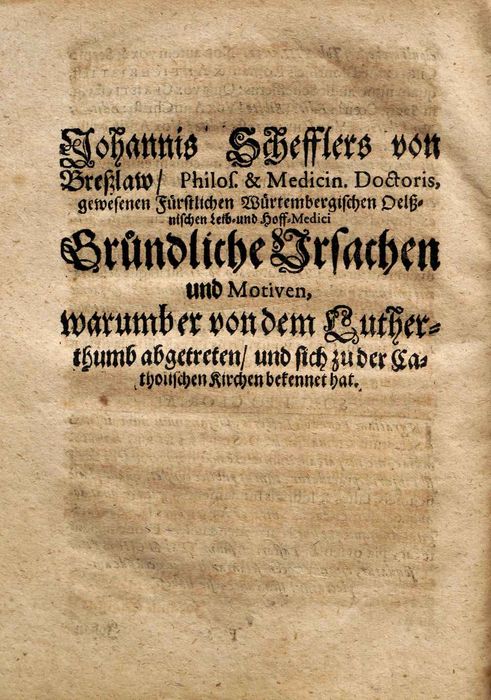 Johannis Schefflers von
Breßlaw/ Philos. & Medicin. Doctoris,
gewesenen Fürstlichen Würtembergischen Oelß-
nischen Leib- und Hoff-Medici
Gründliche Ursachen
und Motiven,
warumb er von dem Luther-
thumb abgetreten/ und sich zu der Ca-
tholischen Kirchen bekennet hat.